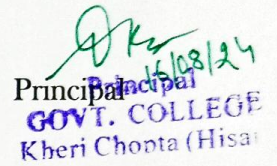 16/08/24
Principal
Principal
GOVT. COLLEGE
Kheri Chopta (Hisar